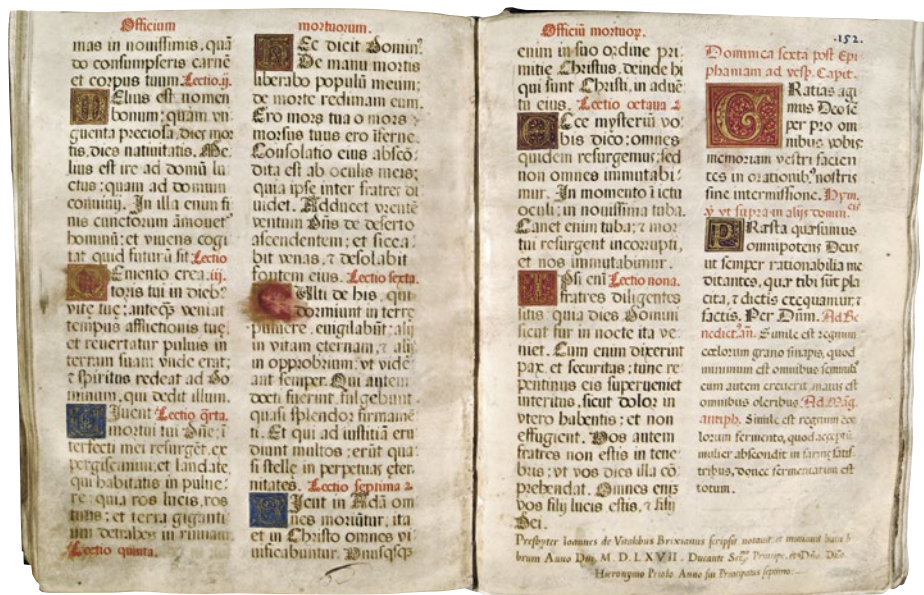 Officium
mas in nouissimis, quā
do consumpseris carnē
et corpus tuum. Lectio .ij.
Melius est nomen
bonum: quam vn
guenta preciosa, dies mor
tis, dies natiuitatis. Me
lius est ire ad domū lu
ctus: quam ad domum
conuiuij. In illa enim fi
nis cunctorum āmonet
hominū: et viuens cogi
tat quid futurū sit. Lectio
Memento crea .iij.
toris tui in dieb
vite tue: anteq̄ veniat
tempus afflictionis tue,
et reuertatur puluis in
terram suam vnde erat;
⁊ spiritus redeat ad Do
minum, qui dedit illum.
Viuent Lectio q̄rta.
mortui tui Dn̄e; i
terfecti mei resurgēt, ex
pergiscimini; et laudate,
qui habitatis in pulue
re: quia ros lucis, ros
tuus: et terrā giganti
um detrabes in ruinam.
Lectio quinta.
mortuorum.
Hec dicit Domin⁹
De manu mortis
liberabo populū meum;
de morte redimam eum.
Ero mors tua o mors
morsus tuus ero īferne.
Consolatio eius abscō
dita est ab oculis meis;
quia ipse inter fratres di
uidet. Adducet vrentē
ventum Dn̄s de deserto
ascendentem; et sicca
bit venas, ⁊ desolabit
fontem eius. Lectio sexta.
Multi de his, qui
dormiunt in terre
puluere, euigilabūt: alij
in vitam eternam, ⁊ alij
in opprobrium, vt videā
ant semper. Qui autem
docti fuerint, fulgebunt
quasi splendor firmamē
ti. Et qui ad iustitiā eru
diunt multos: erūt qua
si stelle in perpetuas eter
nitates. Lectio septima
Sicut in Adā om
nes moriūtur, ita
et in Christo omnes vi
uificabuntur. Vnusqsq̄
Officiū mortuoꝝ.
enim in suo ordine pri
mitie Christus, deinde hi
qui sunt Christi, in aduē
tu eius. Lectio octaua
Ecce mysteriū vo
bis dico: omnes
quidem resurgemus; sed
non omnes immutabi
mur. In momento ī ictu
oculi; in nouissima tuba.
Canet enim tuba; ⁊ mor
tui resurgent incorrupti,
et nos immutabimur.
Ipsi eni Lectio nona.
fratres diligentes
scitis quia dies Domini
sicut fur in nocte ita ve
niet. Cum enim dixerint
pax et securitas; tunc re
pentinus eis superueniet
interitus, sicut dolor in
vtero habentis; et non
effugient. Vos autem
fratres non estis in tene
bris; vt vos dies illa cō
prehendat. Omnes enim
vos filij lucis estis, ⁊ filij
Dei.
.152.
Dominica sexta post Epi
phaniam ad vesp. Capit.
Gratias agi
mus Deo sē
per pro om
nibus vobis:
memoriam vestri facien
tes in orationib, nostris
sine intermissione. Hym.
ꝟ vt supra in alijs domin.cis
Præsta quæsumus
omnipotens Deus
ut semper rationabilia me
ditantes, quæ tibi sūt pla
cita, & dictis exequamur, &
factis. Per Dūm. Ad Be
nedict.⁹ añ. Simile est regnum
cœlorum grano sinapis, quod
minimum est omnibus seminib⁹
cum autem creuerit maius est
omnibus oleribus. Ad Mag.
antiph. Simile est regnum cœ
lorum fermento, quod acceptū
mulier abscondit in farinę satis
tribus, donec fermentatum est
totum.
Presbyter Ioannes de Vitalibus Brixianus scripsit notauit, et miniauit hunc li
brum Anno Dn̄i M. D. LXVII. Ducante Ser.mo Principe, et Dn̄o. Dn̄o.
Hieronymo Priolo Anno sui Principatus septimo.